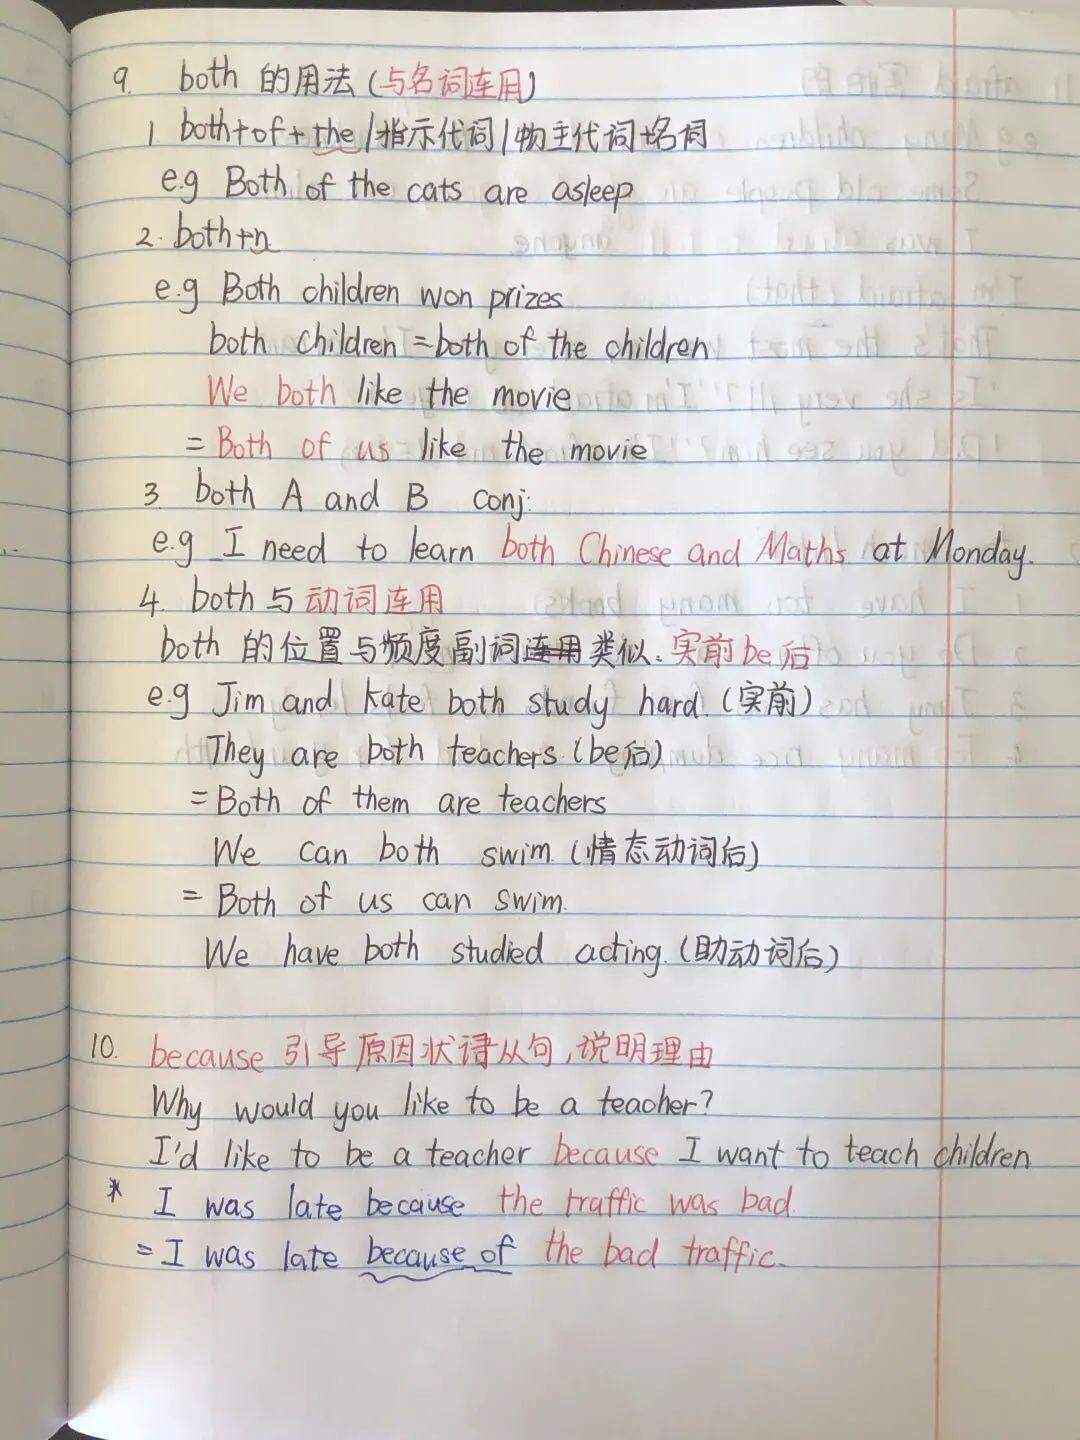 9. both 的用法 (与名词连用)
1. both+of+the/指示代词/物主代词+名词
e.g Both of the cats are asleep
2. both+n
e.g Both children won prizes
both children = both of the children
We both like the movie
= Both of us like the movie
3. both A and B conj.
e.g I need to learn both Chinese and Maths at Monday.
4. both与动词连用
both 的位置与频度副词连用类似:实前be后
e.g Jim and Kate both study hard. (实前)
They are both teachers. (be后)
= Both of them are teachers
We can both swim. (情态动词后)
= Both of us can swim.
We have both studied acting. (助动词后)
10. because 引导原因状语从句,说明理由
Why would you like to be a teacher?
I'd like to be a teacher because I want to teach children
* I was late because the traffic was bad.
= I was late because of the bad traffic.